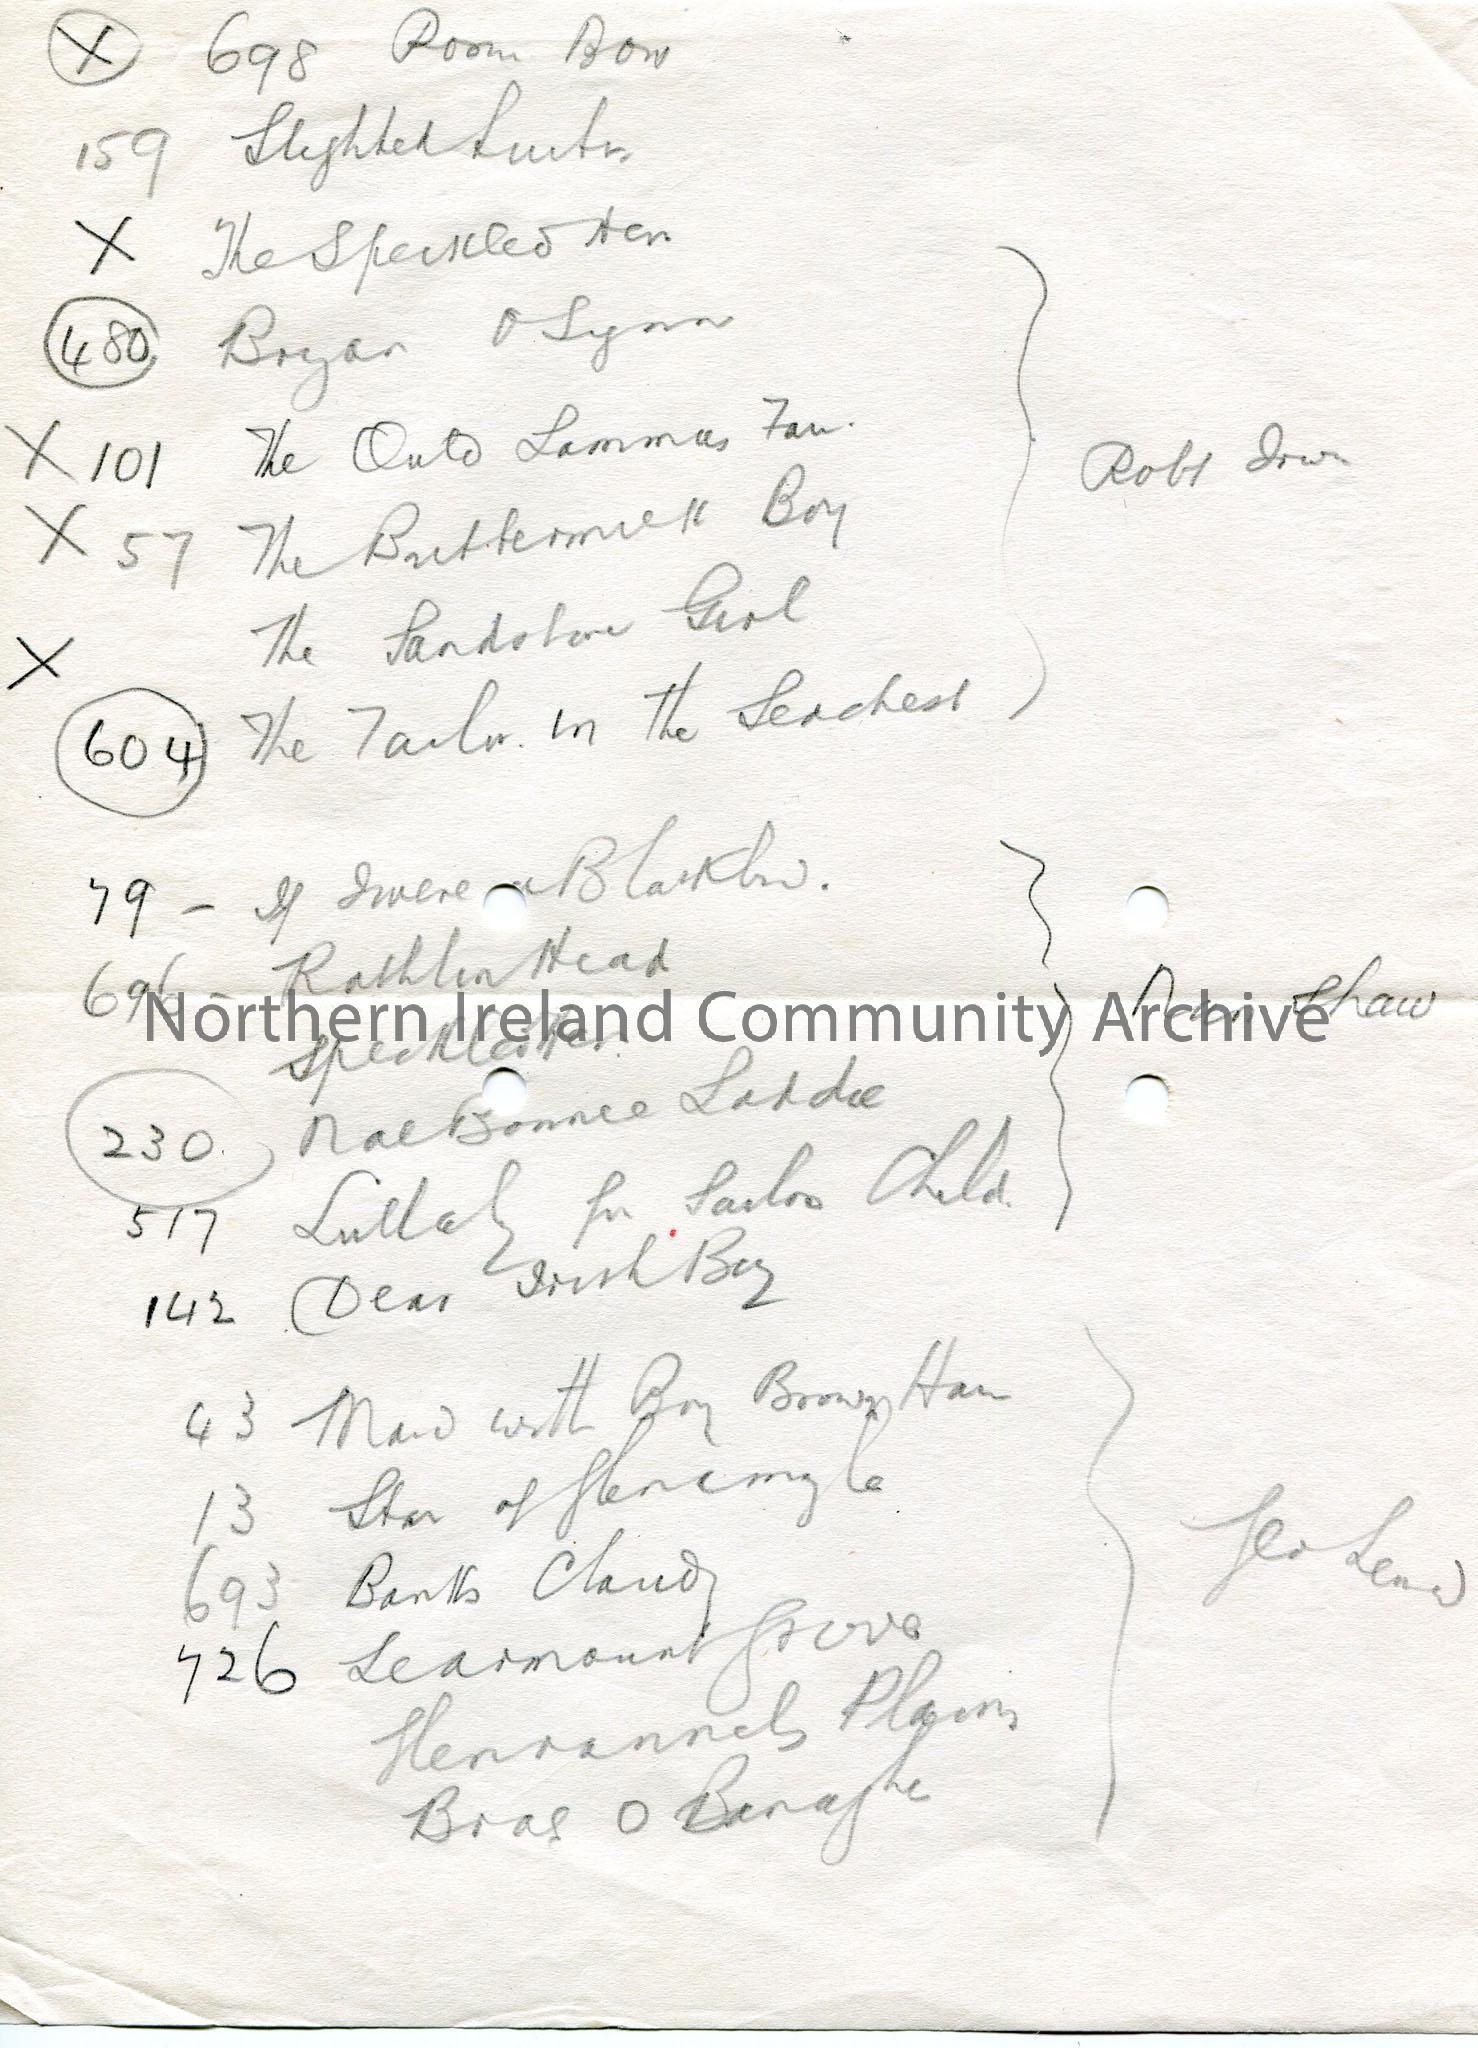 X 698
159 Slighted Suitor
X The Speckled Hen
480 Bryan O Lynn
X 101 The Ould Lammas Fair.
X 57 The Buttermilk Boy
The Sandstone Girl
X
604 The Tailor in the Seachest
Robt Irwin
79 - If I were a Blackbird.
696 - Rathlin Head
Speckled Hen.
230. Mae Bonnie Laddie
517 Lullaby for Sailors Child.
142 Dear Irish Boy
Shaw
43 Maid with Bonny Brown Hair
13 Star of Glenamyle
693 Banks Claudy
726 Learmount Grove
Glenrannels Plains
Braes O Banaghe
Geo
Northern Ireland Community Archive